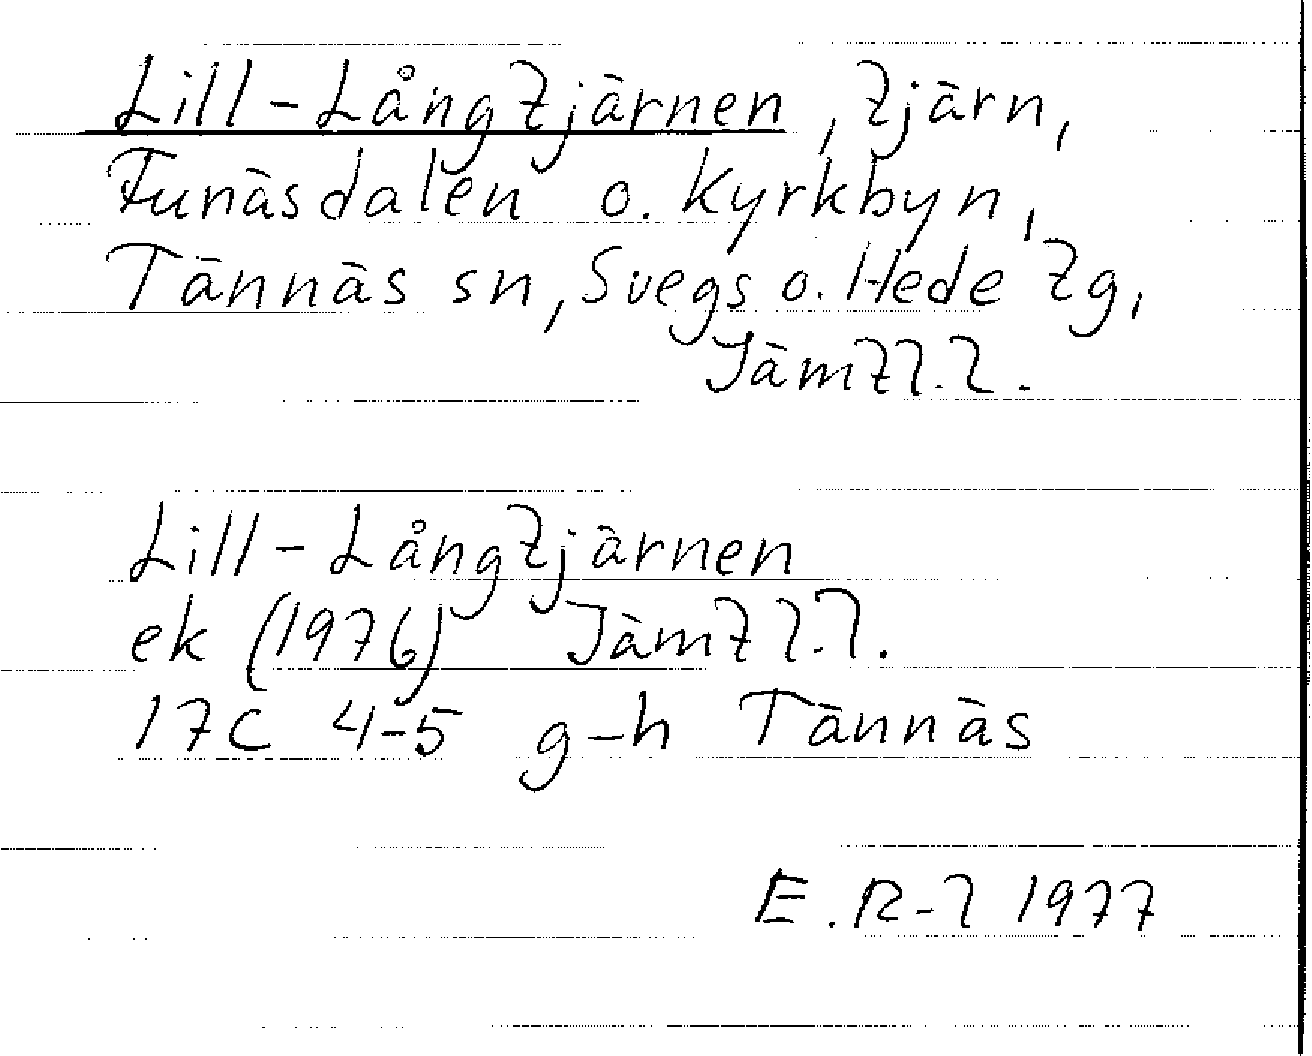 Lill-Långtjärnen, tjärn,
Funäsdalen o. Kyrkbyn,
Tännäs sn, Svegs o. Hede tg,
Jämtl.l.
Lill-Långtjärnen
ek (1976) Jämtl.l.
17C 4-5 g-h Tännäs
E.R-l 1977